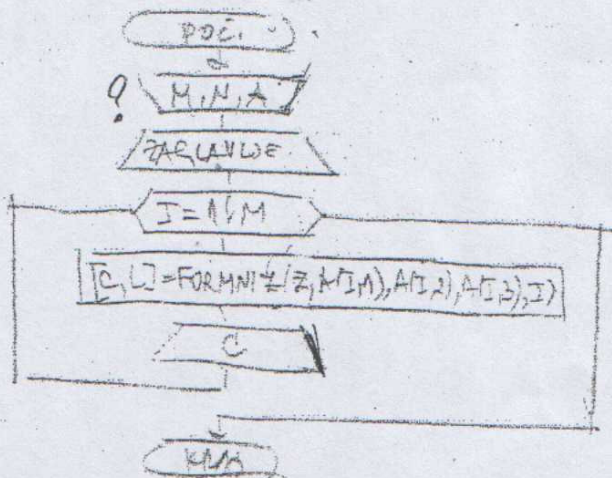 POČ.
? M, N, A
ZAGLAVLJE
I = 1, M
[C, L] = FORMNIZ(Z, A(I,1), A(I,2), A(I,3), I)
C